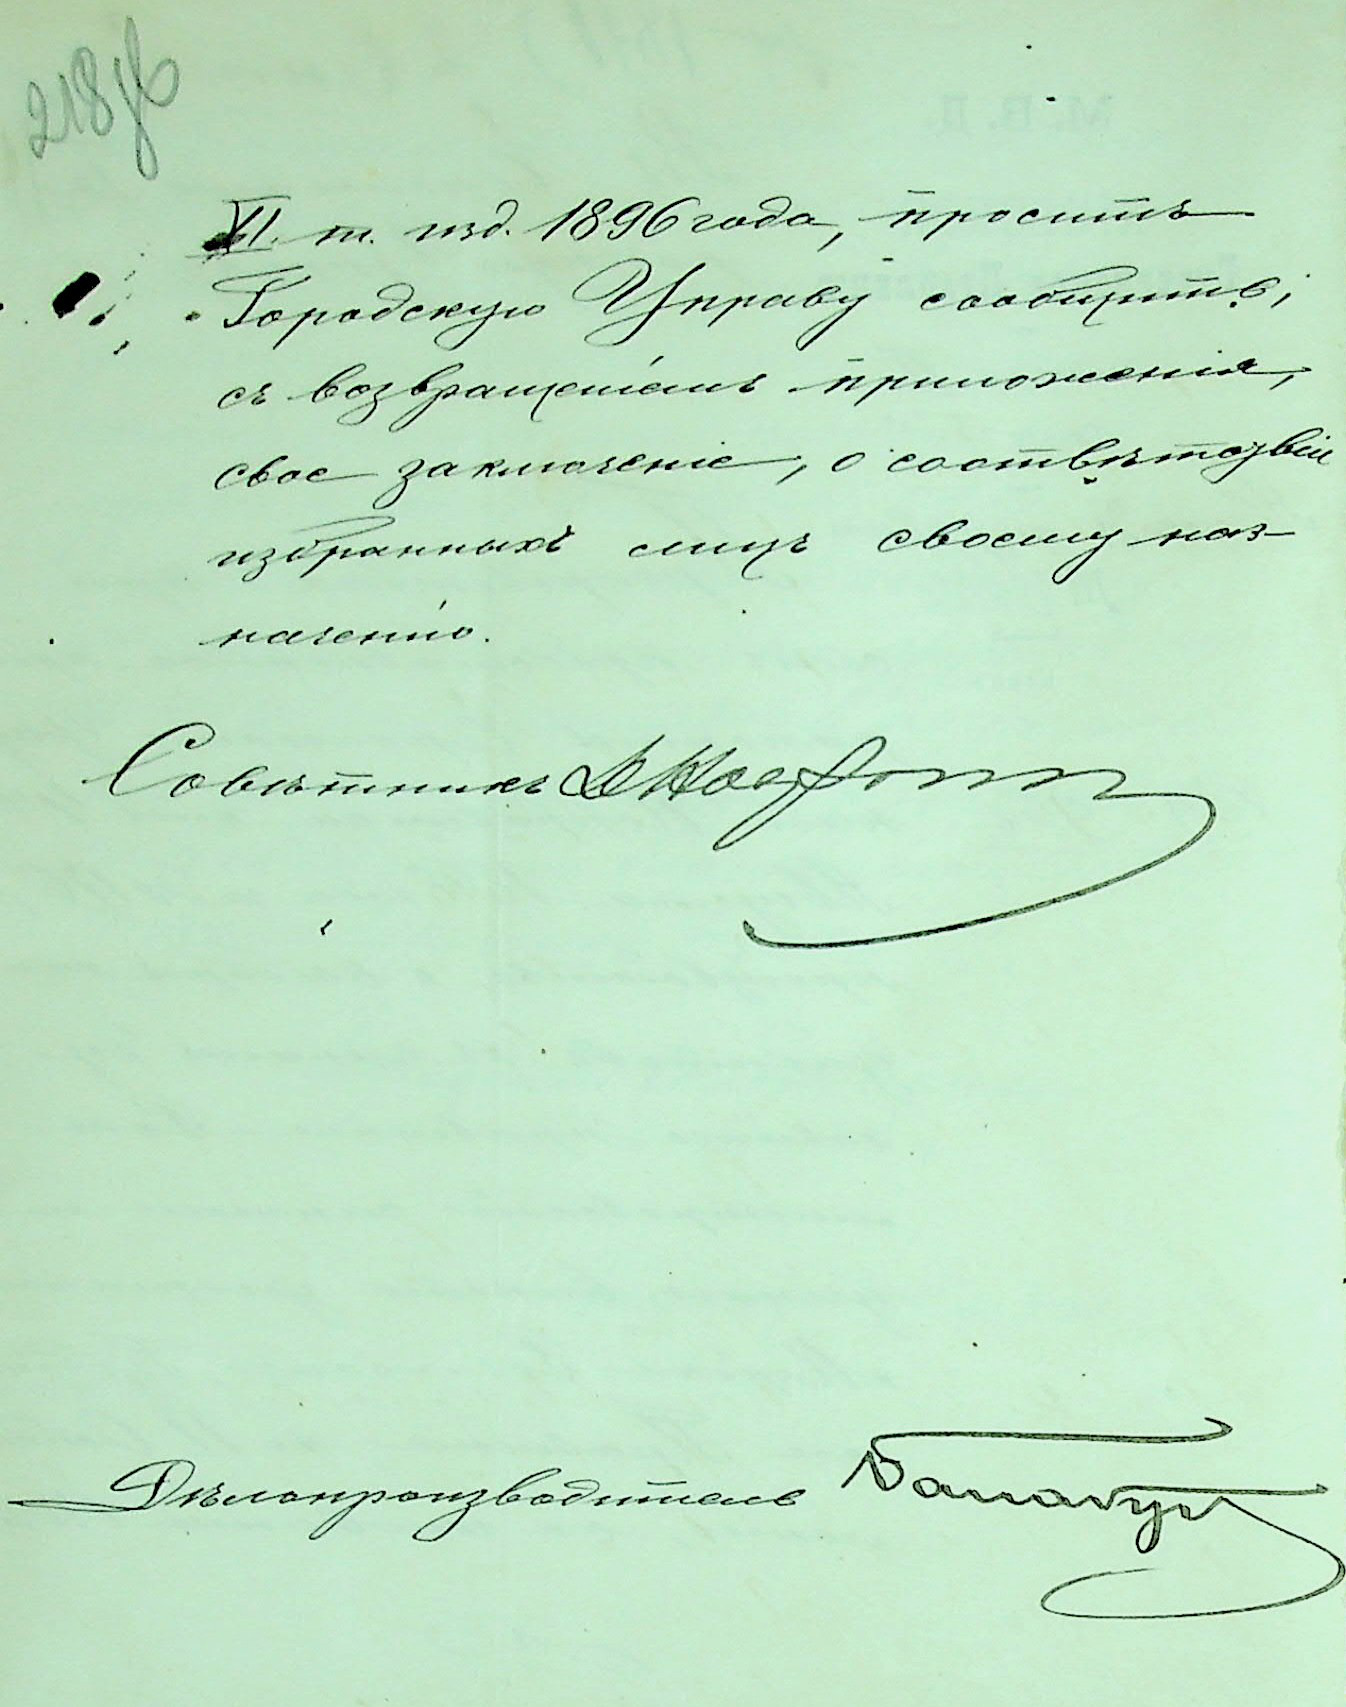 218 об
XI. т. изд. 1896 года, проситъ
Городскую Управу сообщить,
съ возвращеніемъ приложенія,
свое заключеніе, о соотвѣтствіи
избранныхъ лицъ своему наз-
наченію.
Совѣтникъ
Дѣлопроизводитель